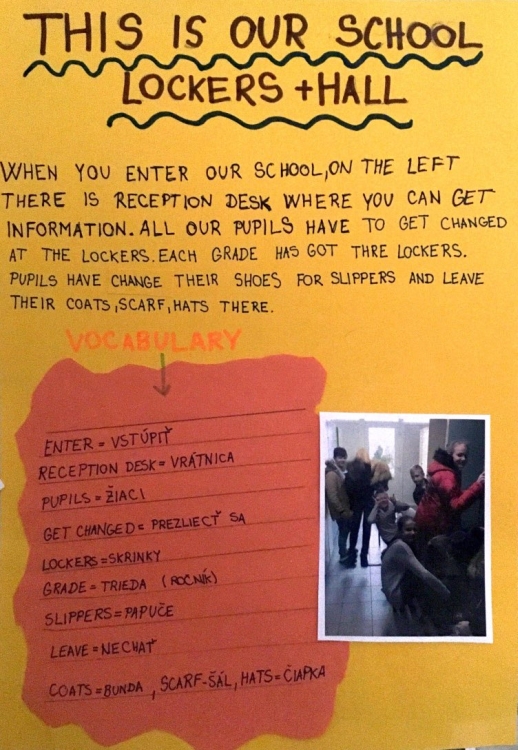 THIS IS OUR SCHOOL
LOCKERS + HALL
WHEN YOU ENTER OUR SCHOOL, ON THE LEFT
THERE IS RECEPTION DESK WHERE YOU CAN GET
INFORMATION. ALL OUR PUPILS HAVE TO GET CHANGED
AT THE LOCKERS. EACH GRADE HAS GOT THRE LOCKERS.
PUPILS HAVE CHANGE THEIR SHOES FOR SLIPPERS AND LEAVE
THEIR COATS, SCARF, HATS THERE.
VOCABULARY
ENTER = VSTÚPIŤ
RECEPTION DESK = VRÁTNICA
PUPILS = ŽIACI
GET CHANGED = PREZLIECŤ SA
LOCKERS = SKRINKY
GRADE = TRIEDA (ROČNÍK)
SLIPPERS = PAPUČE
LEAVE = NECHAŤ
COATS = BUNDA, SCARF - ŠÁL, HATS = ČIAPKA